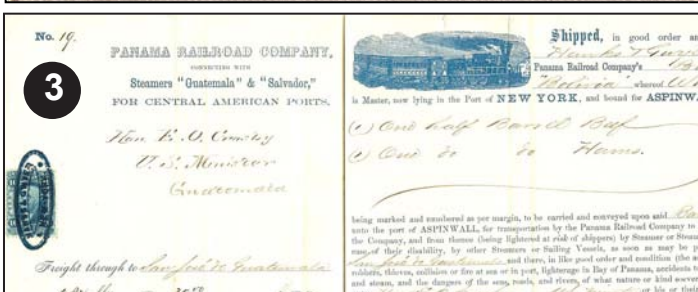 No. 19.
3
PANAMA RAILROAD COMPANY,
CONNECTING WITH
Steamers "Guatemala" & "Salvador,"
FOR CENTRAL AMERICAN PORTS.
Hon. E. O. Crosby
U. S. Minister
Guatemala
Freight through to San José de Guatemala
Shipped, in good order an
Panama Railroad Company's
whereof
is Master, now lying in the Port of NEW YORK, and bound for ASPINW
(1) One half Barrel Beef
(1) One do do Hams.
being marked and numbered as per margin, to be carried and conveyed upon said
unto the port of ASPINWALL, for transportation by the Panama Railroad Company to
the Company, and from thence (being lightered at risk of shippers) by Steamer or Steam
case of their disability, by other Steamers or Sailing Vessels, as soon as may be p
San José de Guatemala and there, in like good order and condition (the a
robbers, thieves, collision or fire at sea or in port, lighterage in Bay of Panama, accidents
and steam, and the dangers of the seas, roads, and rivers, of what nature or kind soever
or his or their